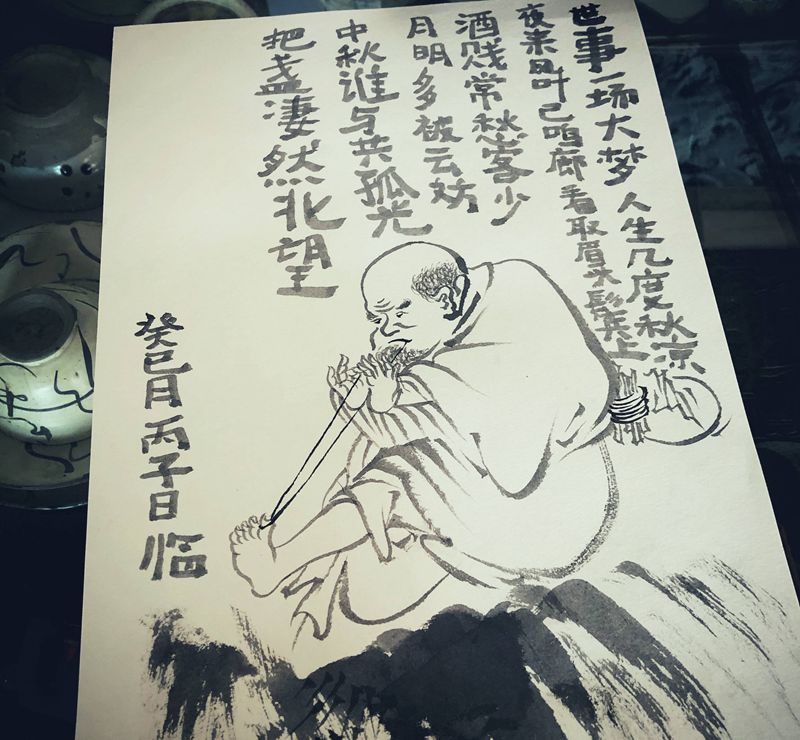 世事一场大梦
人生几度秋凉
夜来风叶已鸣廊
看取眉头鬓上
酒贱常愁客少
月明多被云妨
中秋谁与共孤光
把盏淒然北望
癸巳月丙子日临